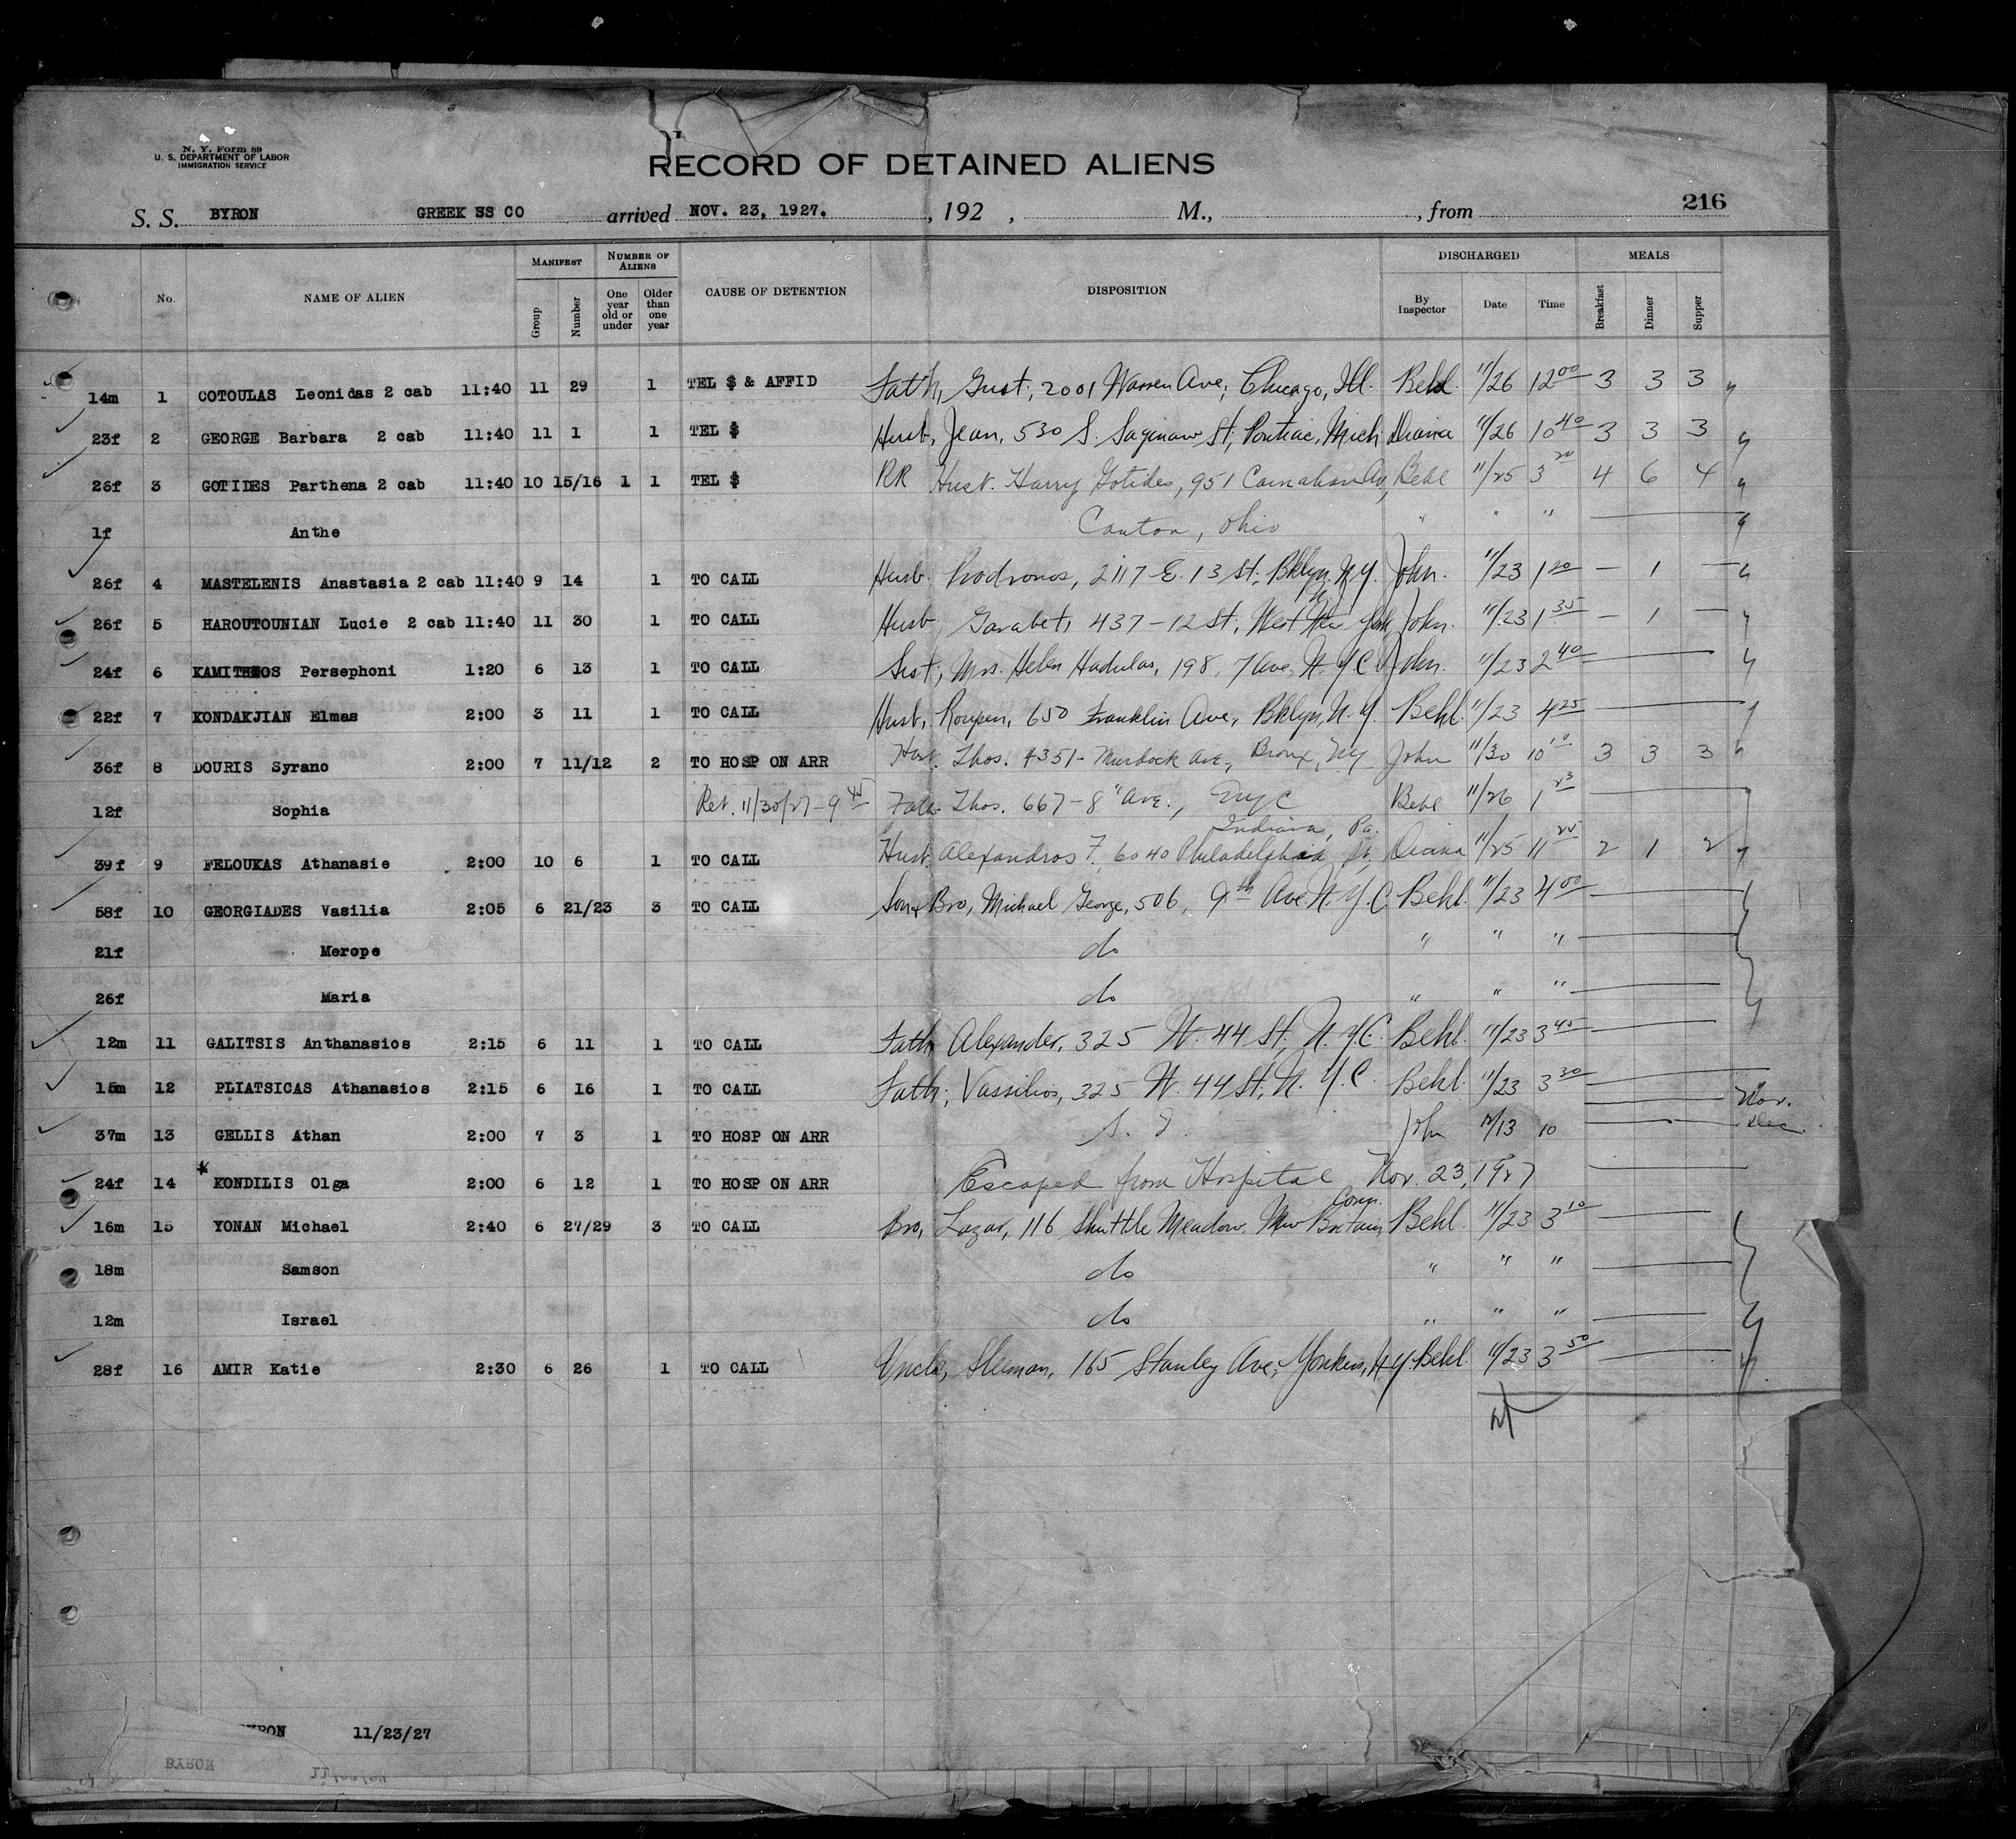 N. Y. Form 89
U. S. DEPARTMENT OF LABOR
IMMIGRATION SERVICE
RECORD OF DETAINED ALIENS
216
S. S. BYRON GREEK SS CO arrived NOV. 23, 1927. , 192 , M., , from
No. NAME OF ALIEN MANIFEST Group Number NUMBER OF ALIENS One year old or under Older than one year CAUSE OF DETENTION DISPOSITION DISCHARGED By Inspector Date Time MEALS Breakfast Dinner Supper
14m 1 COTOULAS Leonidas 2 cab 11:40 11 29 1 TEL $ & AFFID Fath, Gust, 2001 Warren Ave, Chicago, Ill. Behl. 11/26 12 00 3 3 3
23f 2 GEORGE Barbara 2 cab 11:40 11 1 1 TEL $ Husb, Jean, 530 S. Saginaw St, Pontiac, Mich 11/26 10 40 3 3 3
26f 3 GOTIDES Parthena 2 cab 11:40 10 15/16 1 1 TEL $ RR Husb. Harry Gotides, 951 Carnahan Av, Behl 11/25 3 20 4 6 4
1f Anthe Canton, Ohio " " "
26f 4 MASTELENIS Anastasia 2 cab 11:40 9 14 1 TO CALL Husb. Prodromos, 2117 E. 13 St, Bklyn, N.Y. John. 11/23 1 20 — 1 —
26f 5 HAROUTOUNIAN Lucie 2 cab 11:40 11 30 1 TO CALL Husb, Garabet, 437-12 St, West New York John. 11/23 1 35 — 1 —
24f 6 KAMITHEOS Persephoni 1:20 6 13 1 TO CALL Sist, Mrs. Helen Hadulas, 198, 7 Ave, N.Y.C John. 11/23 2 40
22f 7 KONDAKJIAN Elmas 2:00 3 11 1 TO CALL Husb, Roupen, 650 Franklin Ave, Bklyn, N.Y. Behl. 11/23 4 25
36f 8 DOURIS Syrano 2:00 7 11/12 2 TO HOSP ON ARR Husb. Thos. 4351- Murdock Ave, Bronx, NY John 11/30 10 10 3 3 3
12f Sophia Ret. 11/30/27-9 45 Fath. Thos. 667-8" Ave., NYC Behl 11/26 1
Indiana, Pa.
39f 9 FELOUKAS Athanasie 2:00 10 6 1 TO CALL Husb. Alexandros F. 6040 Philadelphia St, 11/25 11 2 1 2
58f 10 GEORGIADES Vasilia 2:05 6 21/23 3 TO CALL Son & Bro, Michael George, 506, 9th Ave N.Y.C Behl. 11/23 4 00
21f Merope do " " "
26f Maria do " " "
12m 11 GALITSIS Anthanasios 2:15 6 11 1 TO CALL Fath, Alexander, 325 W. 44 St, N.Y.C. Behl. 11/23 3 45
15m 12 PLIATSICAS Athanasios 2:15 6 16 1 TO CALL Fath, Vassilios, 325 W. 44 St, N.Y.C. Behl. 11/23 3 30 Nov.
37m 13 GELLIS Athan 2:00 7 3 1 TO HOSP ON ARR John 12/13 10 Dec.
24f 14 * KONDILIS Olga 2:00 6 12 1 TO HOSP ON ARR Escaped from Hospital Nov. 23, 1927
16m 15 YONAN Michael 2:40 6 27/29 3 TO CALL Bro, Lazar, 116 Shuttle Meadow. New Britain, Conn. Behl. 11/23 3 10
18m Samson do " " "
12m Israel do " " "
28f 16 AMIR Katie 2:30 6 26 1 TO CALL Uncle, Sleeman, 165 Stanley Ave, Yonkers, N.Y. Behl. 11/23 3 50
BYRON 11/23/27